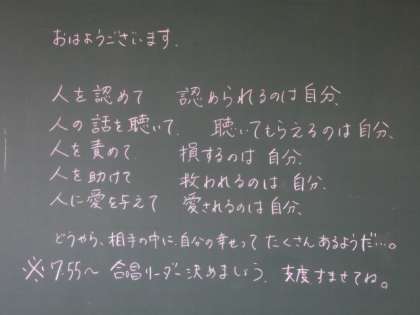 おはようございます.
人を認めて 認められるのは自分、
人の話を聴いて、 聴いてもらえるのは自分、
人を責めて、 損するのは自分、
人を助けて 救われるのは自分、
人に愛を与えて 愛されるのは自分、
どうやら、相手の中に自分の幸せって たくさんあるようだ…。
※7:55〜 合唱リーダー決めましょう、支度すませてね。